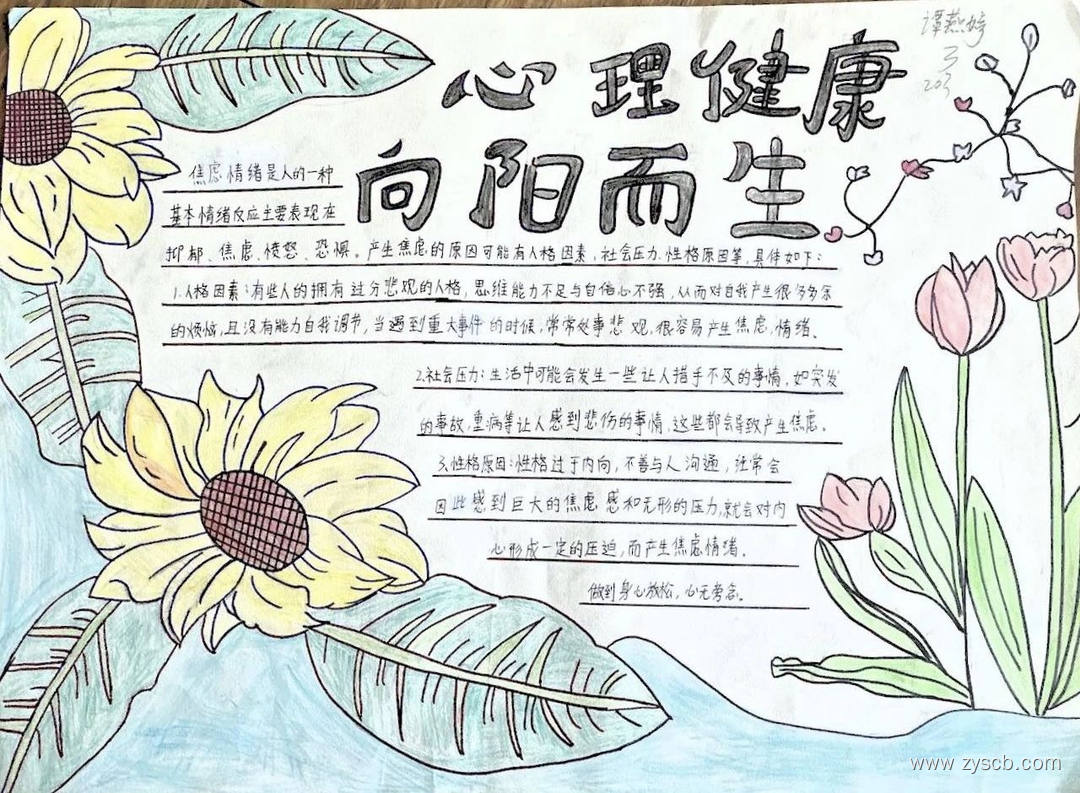 心理健康
向阳而生
谭燕婷
3
203
焦虑情绪是人的一种
基本情绪反应主要表现在
抑郁、焦虑、愤怒、恐惧。产生焦虑的原因可能有人格因素,社会压力.性格原因等,具体如下:
1.人格因素:有些人的拥有过分悲观的人格,思维能力不足与自信心不强,从而对自我产生很多多余
的烦恼,且没有能力自我调节,当遇到重大事件的时候,常常处事悲观,很容易产生焦虑,情绪、
2.社会压力:生活中可能会发生一些让人措手不及的事情,如突发
的事故,重病等让人感到悲伤的事情,这些都会导致产生焦虑。
3.性格原因:性格过于内向,不善与人沟通,经常会
因此感到巨大的焦虑感和无形的压力,就会对内
心形成一定的压迫,而产生焦虑情绪、
做到身心放松,心无旁念。
www.zyscb.com